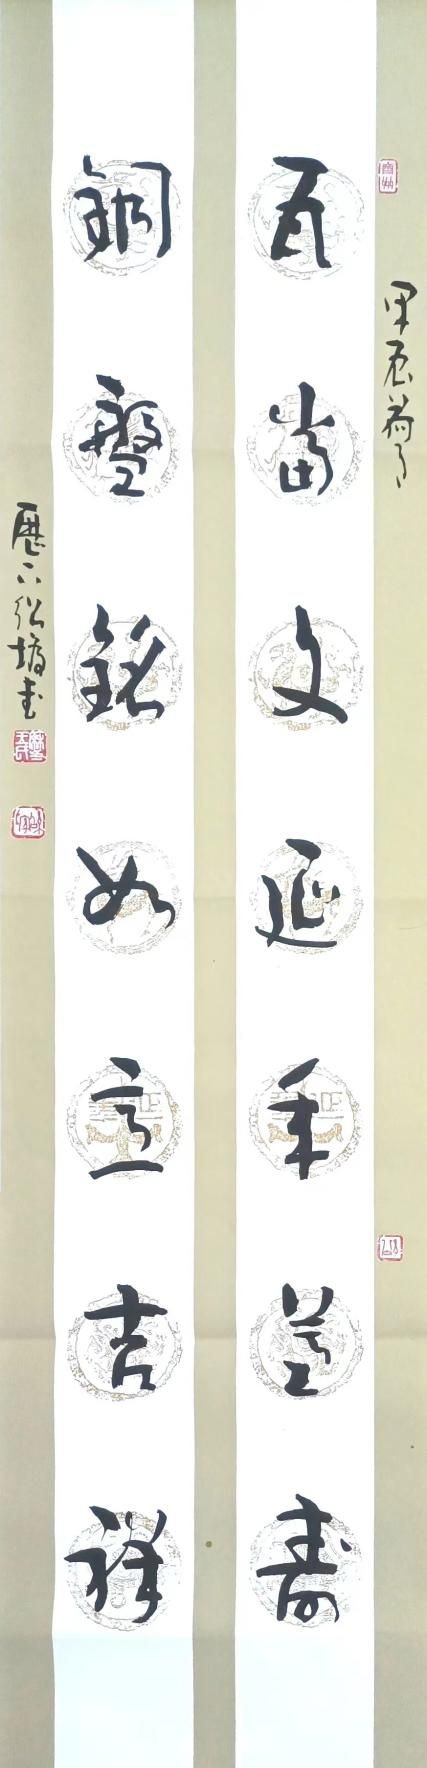 甲辰荷月
瓦當文延年益壽
銅盤銘如意吉祥
歷下